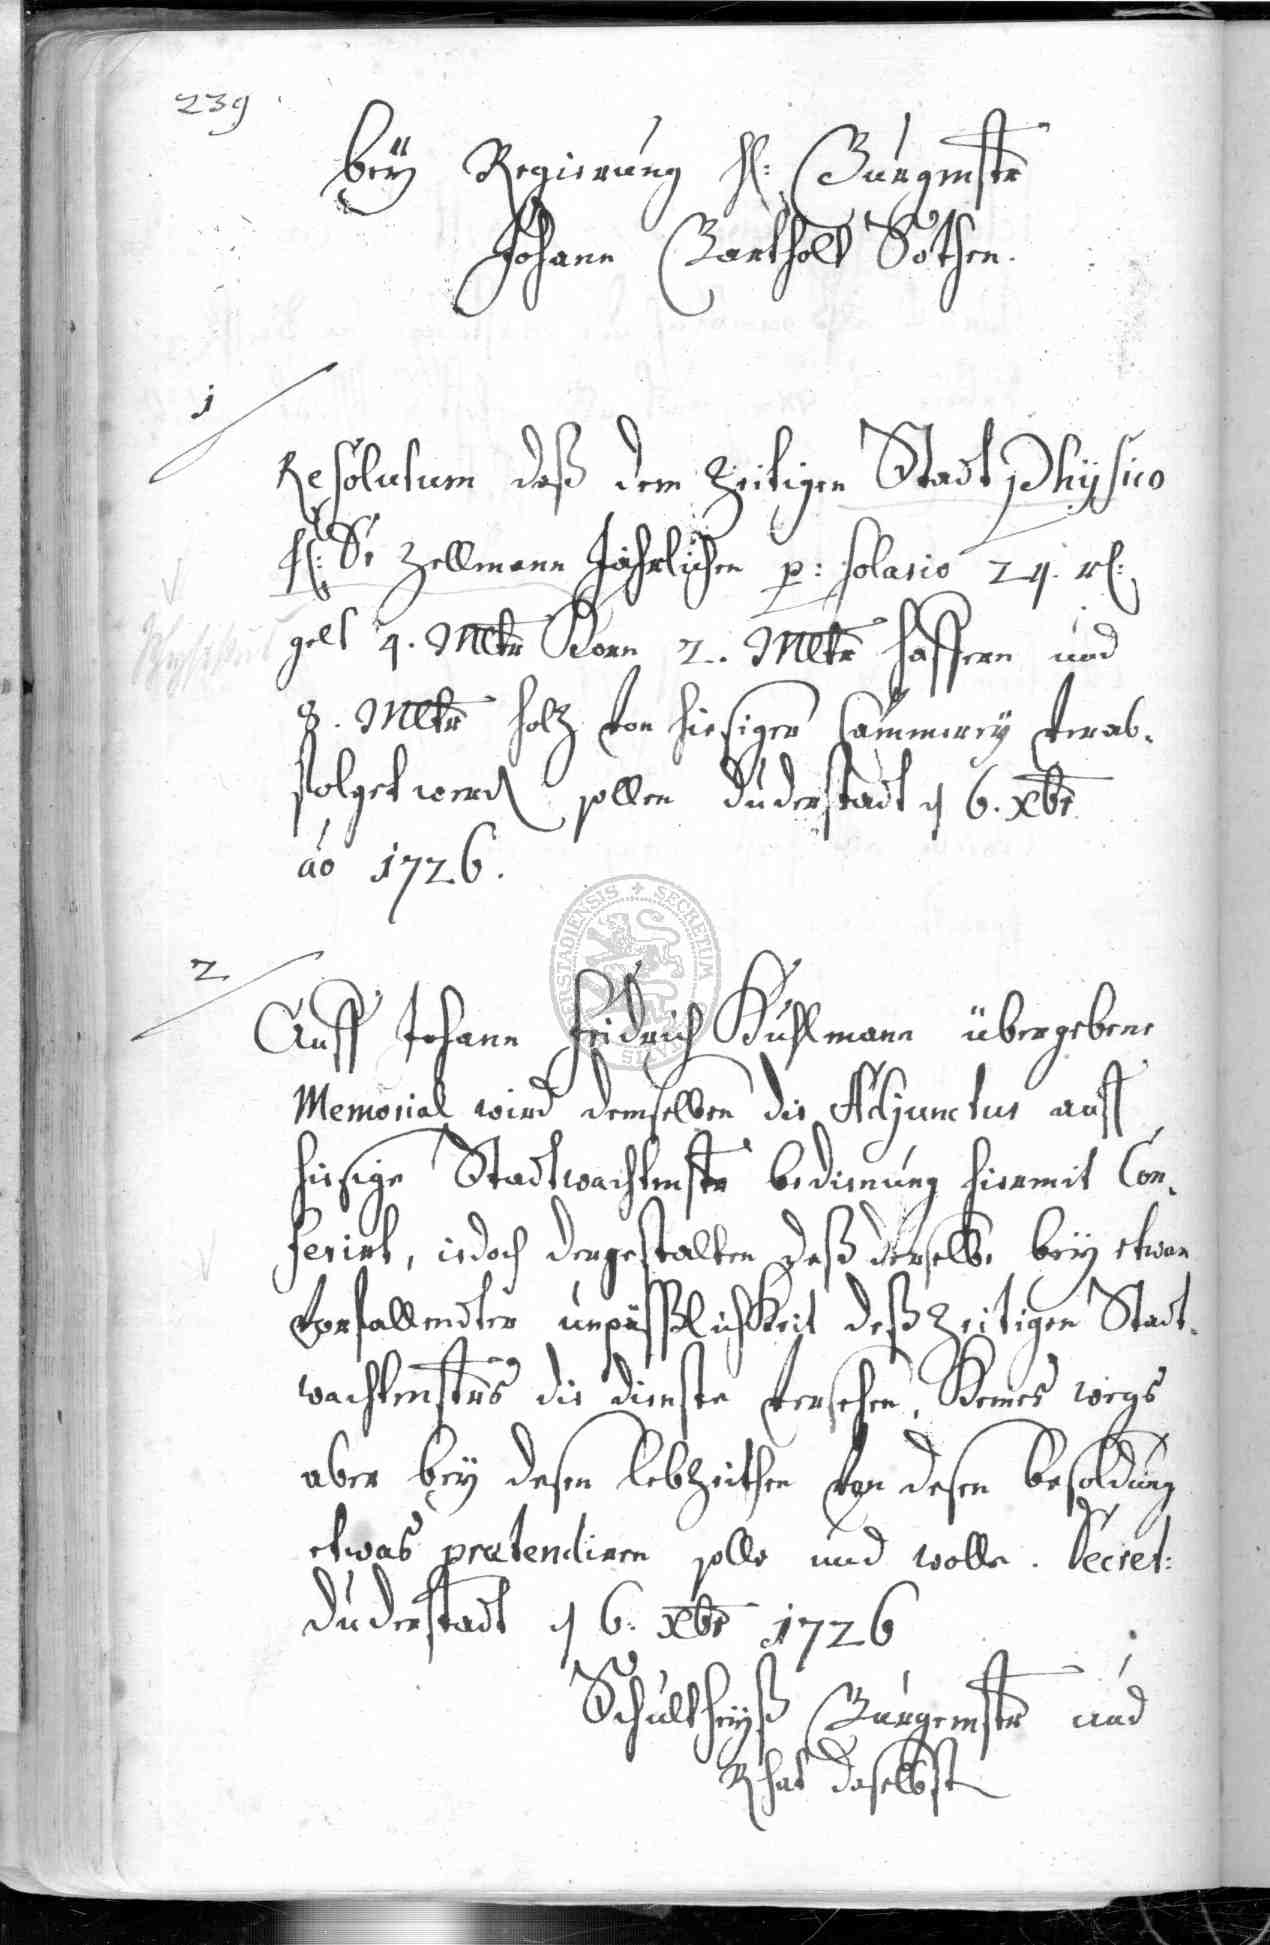 239
beÿ Regierung H: Burgmstr
Johann Barthold Söthen.
1
Resolutum daß dem Zeitigen Stadt Physico
H: Dr Zellmann Jährlichen p: solario 24. rl:
gelt 4. Mltr Korn 2. Mltr haffern und
8. Mltr holtz von hiesiger Cammereÿ verab-
folget werd sollen Duderstadt d 6. Xbr
ao 1726.
2
Auff Johann Fridrich Kuhlmann übergebene
Memorial wird demselben die Adjunctur auff
hiesige Stadtwachtmstr bedienung hiermit Con-
ferirt, iedoch dergestalten daß derselbe beÿ etwan
vorfallendter unpässlichkeit deß Zeitigen Stadt-
wachtmstrs die dienste versehen, Keines wegs
aber beÿ desen lebZeithen von desen besoldung
etwas prætendiren solle und wolle. Decret:
Duderstadt d 6. Xbr 1726
Schultheÿß Burgemstr und
Rhat daselbst